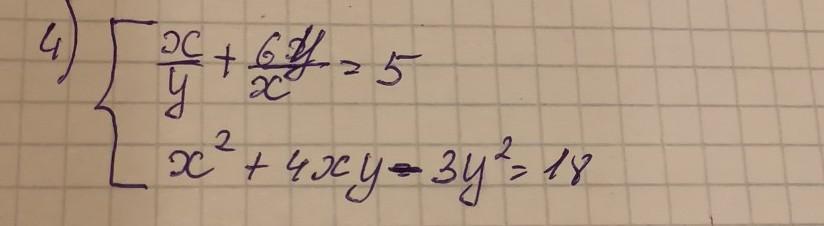 4) x/y + 6y/x = 5
x² + 4xy - 3y² = 18